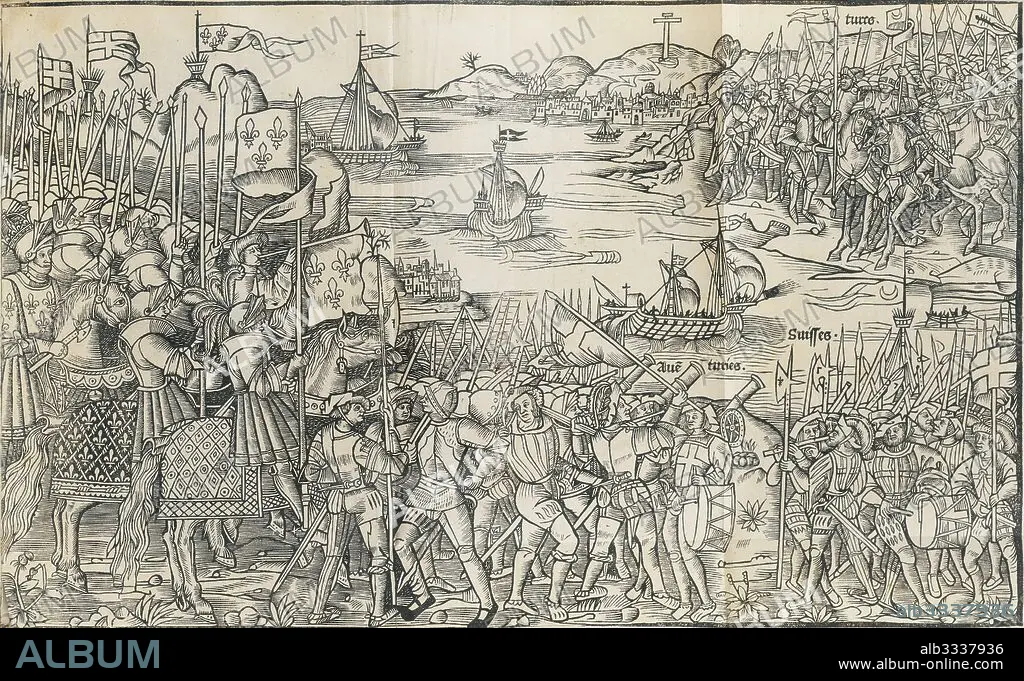 turcs.
Suisses.
Auē turies.
ALBUM
alb3337936
www.album-online.com